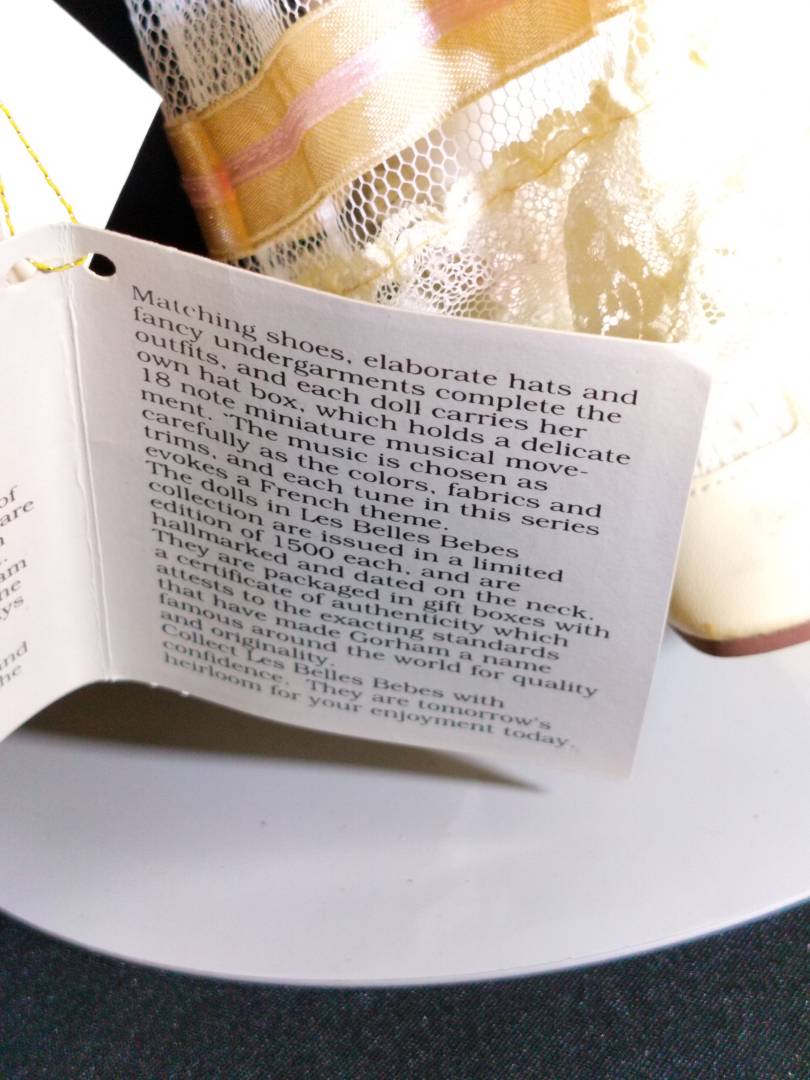 of
are
am
he
ys
and
he
Matching shoes, elaborate hats and
fancy undergarments complete the
outfits, and each doll carries her
own hat box, which holds a delicate
18 note miniature musical move-
ment. The music is chosen as
carefully as the colors, fabrics and
trims, and each tune in this series
evokes a French theme.
The dolls in Les Belles Bebes
collection are issued in a limited
edition of 1500 each, and are
hallmarked and dated on the neck.
They are packaged in gift boxes with
a certificate of authenticity which
attests to the exacting standards
that have made Gorham a name
famous around the world for quality
and originality.
Collect Les Belles Bebes with
confidence. They are tomorrow's
heirloom for your enjoyment today.